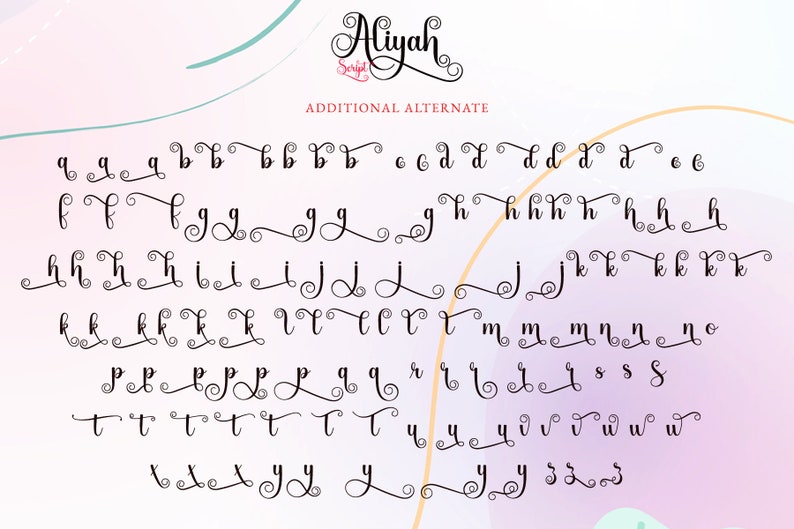 Aliyah
Script
ADDITIONAL ALTERNATE
a a a b b b b b b c c d d d d d d e e
f f f g g g g g h h h h h h h h
h h h h i i i j j j j j k k k k k k
k k k k k k l l l l l l m m m n n n o
p p p p p p q q r r r r r s s s
t t t t t t t u u u v v v w w w
x x x y y y y y z z z